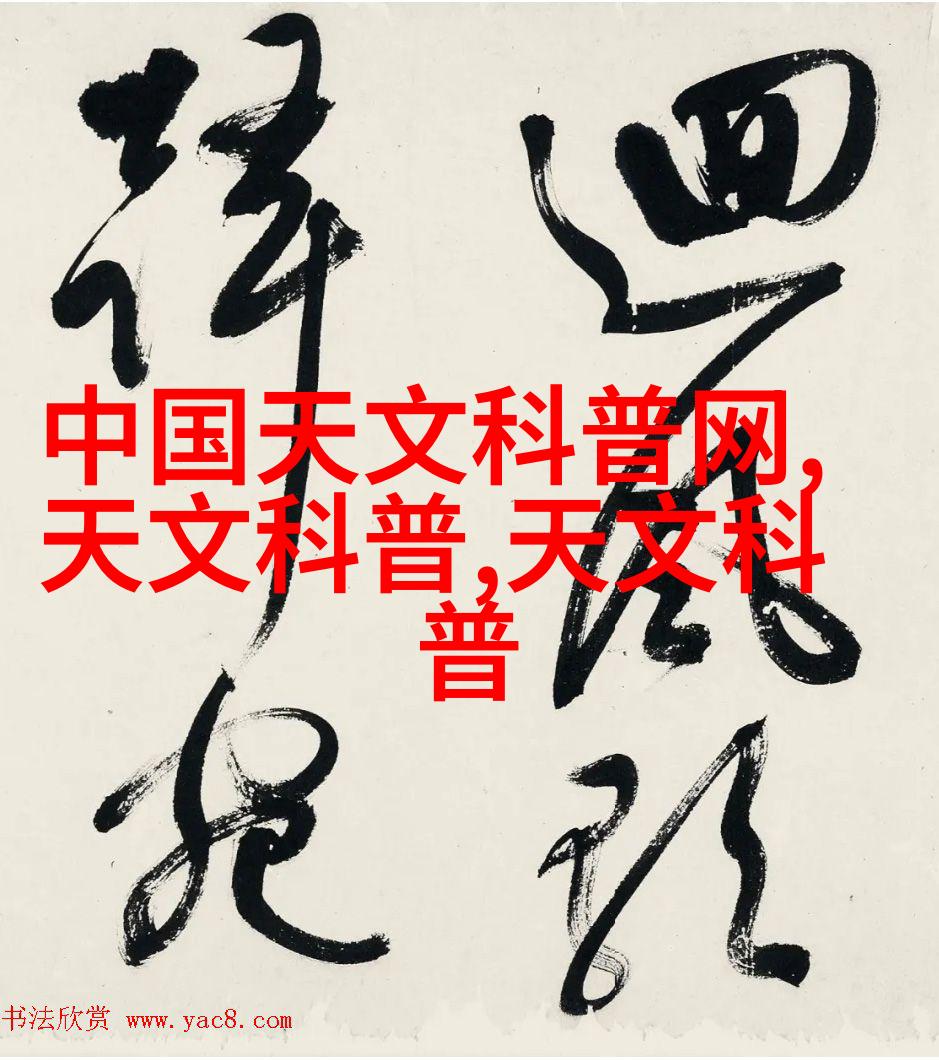 迴風
中国天文科普网,
天文科普,天文科
普
书法欣赏 www.yac8.com